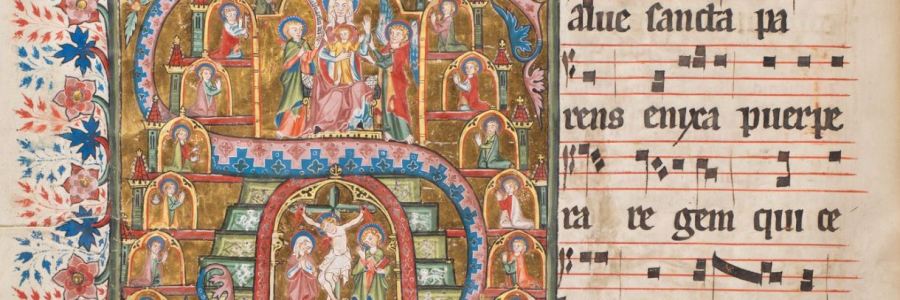 alue sancta pa
rens enixa puerpe
ra re gem qui ce